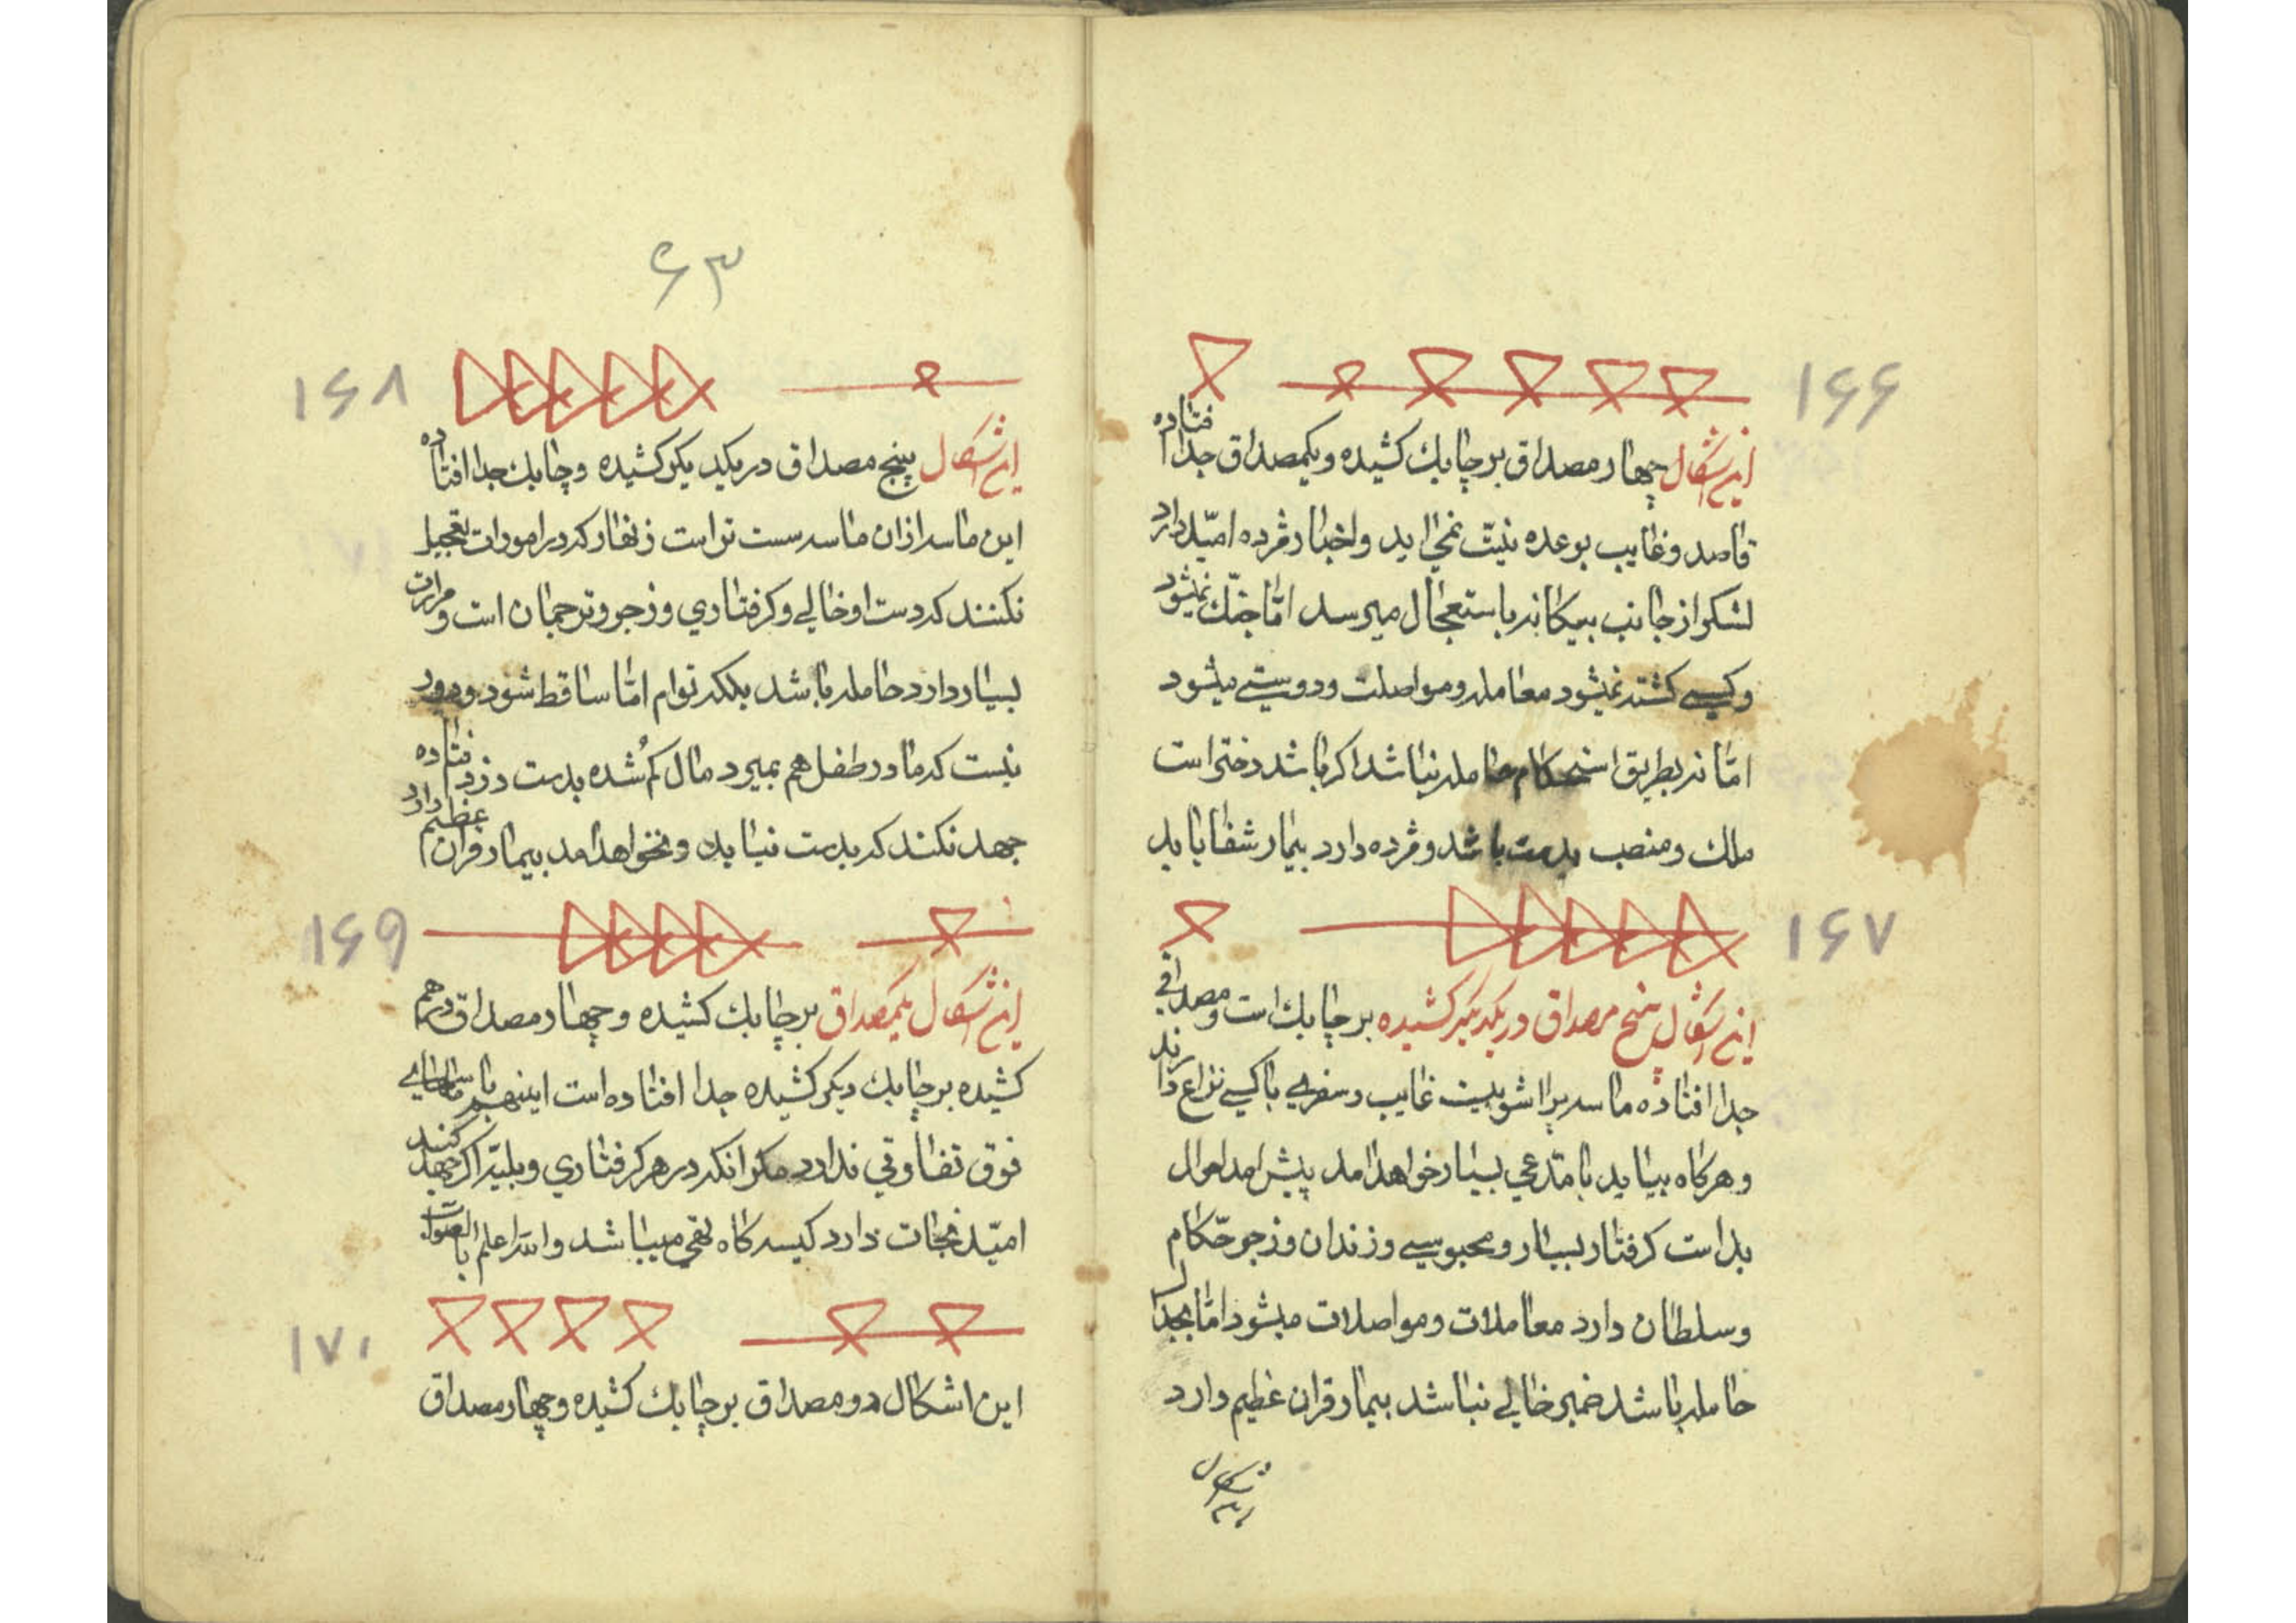 ۱۶۶
این اشکال چهار مصداق بر چابك کشیده و یکمصداق جدا افتاده
قاصد و غایب بوعده نیت نمی اید و اخبار مژده امید دارد
لشکر از جانب بیکانه باستعجال میرسد امّا جنك نمیشود
و کسی کشته نمیشود معامله و مواصلت و دوستی میشود
امّا نه بطریق استحکام حامله نباشد اکر باشد دختر است
ملك و منصب بدست باشد و مژده دارد بیمار شفا یابد
۱۶۷
این اشکال پنج مصداق در یکدیکر کشیده بر چابك است و مصداقی
جدا افتاده ماسه پراشوبیست غایب و سفری با کسی نزاع دارند
و هرکاه بیاید با مدّعی بسیار خواهد امد پیش امد احوال
بد است کرفتار بسیار و محبوسی و زندان و زجر حکّام
و سلطان دارد معاملات و مواصلات میشود امّا بجدل
حامله باشد ضمیر خالی نباشد بیمار قران عظیم دارد
۶۳
۱۶۸
این اشکال پنج مصداق در یکدیکر کشیده و چابك جدا افتاده
این ماسه ازان ماسه سست تر است زنهار که در امورات تعجیل
نکنند که دست او خالی و کرفتاری و زجر و ترجمان است و مرارت
بسیار دارد حامله باشد بلکه توام امّا ساقط شود و دور
نیست که مادر و طفل هم بمیرد مال کم شده بدست دزد افتاده
جهد نکنند که بدست نیاید و نخواهد امد بیمار قران عظیم دارد
۱۶۹
این اشکال یکمصداق بر چابك کشیده و چهار مصداق درهم
کشیده بر چابك دیکر کشیده جدا افتاده است اینهم با ماسهای
فوق تفاوتی ندارد مکر انکه در هر کرفتاری و بلیّه اکر جهد کنند
امید نجات دارد کیسه کاه تهی میباشد والله اعلم بالصواب
۱۷۰
این اشکال دو مصداق بر چابك کشیده و چهار مصداق